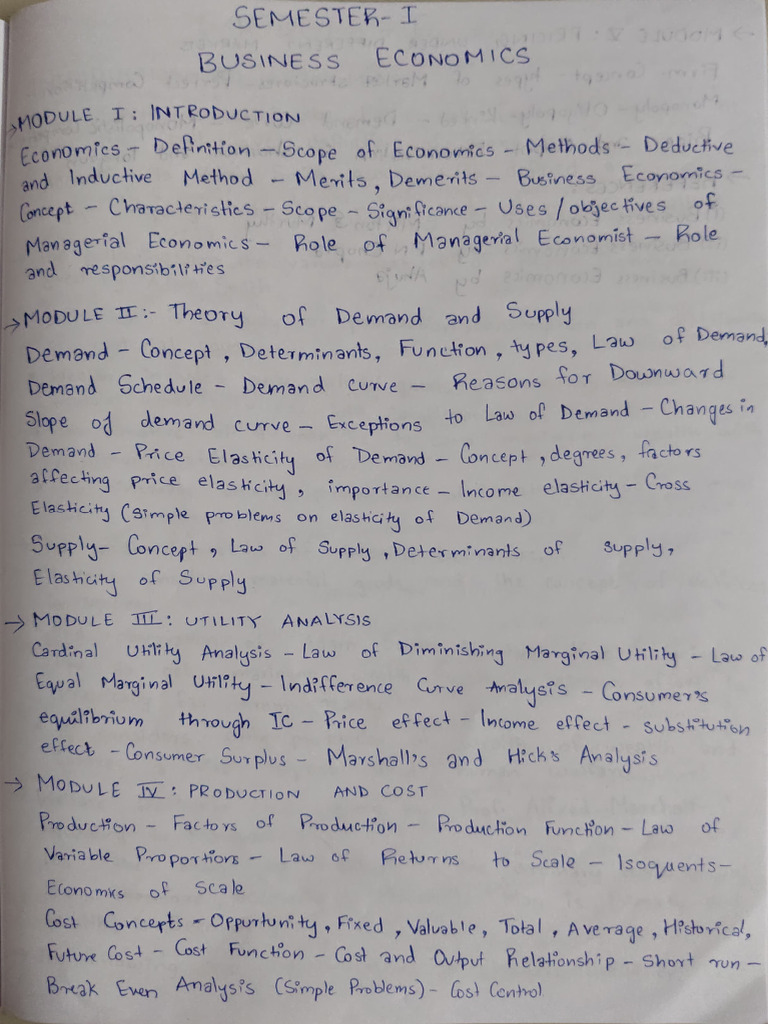 SEMESTER-I
BUSINESS ECONOMICS
→MODULE I: INTRODUCTION
Economics - Definition - Scope of Economics - Methods - Deductive
and Inductive Method - Merits, Demerits - Business Economics -
Concept - Characteristics - Scope - Significance - Uses/objectives of
Managerial Economics - Role of Managerial Economist - Role
and responsibilities
→MODULE II:- Theory of Demand and Supply
Demand - Concept, Determinants, Function, types, Law of Demand,
Demand Schedule - Demand curve - Reasons for Downward
Slope of demand curve - Exceptions to Law of Demand - Changes in
Demand - Price Elasticity of Demand - Concept, degrees, factors
affecting price elasticity, importance - Income elasticity - Cross
Elasticity (Simple problems on elasticity of Demand)
Supply - Concept, Law of Supply, Determinants of supply,
Elasticity of Supply
→ MODULE III: UTILITY ANALYSIS
Cardinal Utility Analysis - Law of Diminishing Marginal Utility - Law of
Equal Marginal Utility - Indifference Curve Analysis - Consumer's
equilibrium through IC - Price effect - Income effect - substitution
effect - Consumer Surplus - Marshall's and Hick's Analysis
→ MODULE IV: PRODUCTION AND COST
Production - Factors of Production - Production Function - Law of
Variable Proportions - Law of Returns to Scale - Isoquents -
Economics of Scale
Cost Concepts - Oppurtunity, Fixed, Valuable, Total, Average, Historical,
Future Cost - Cost Function - Cost and Output Relationship - Short run -
Break Even Analysis (Simple Problems) - Cost Control